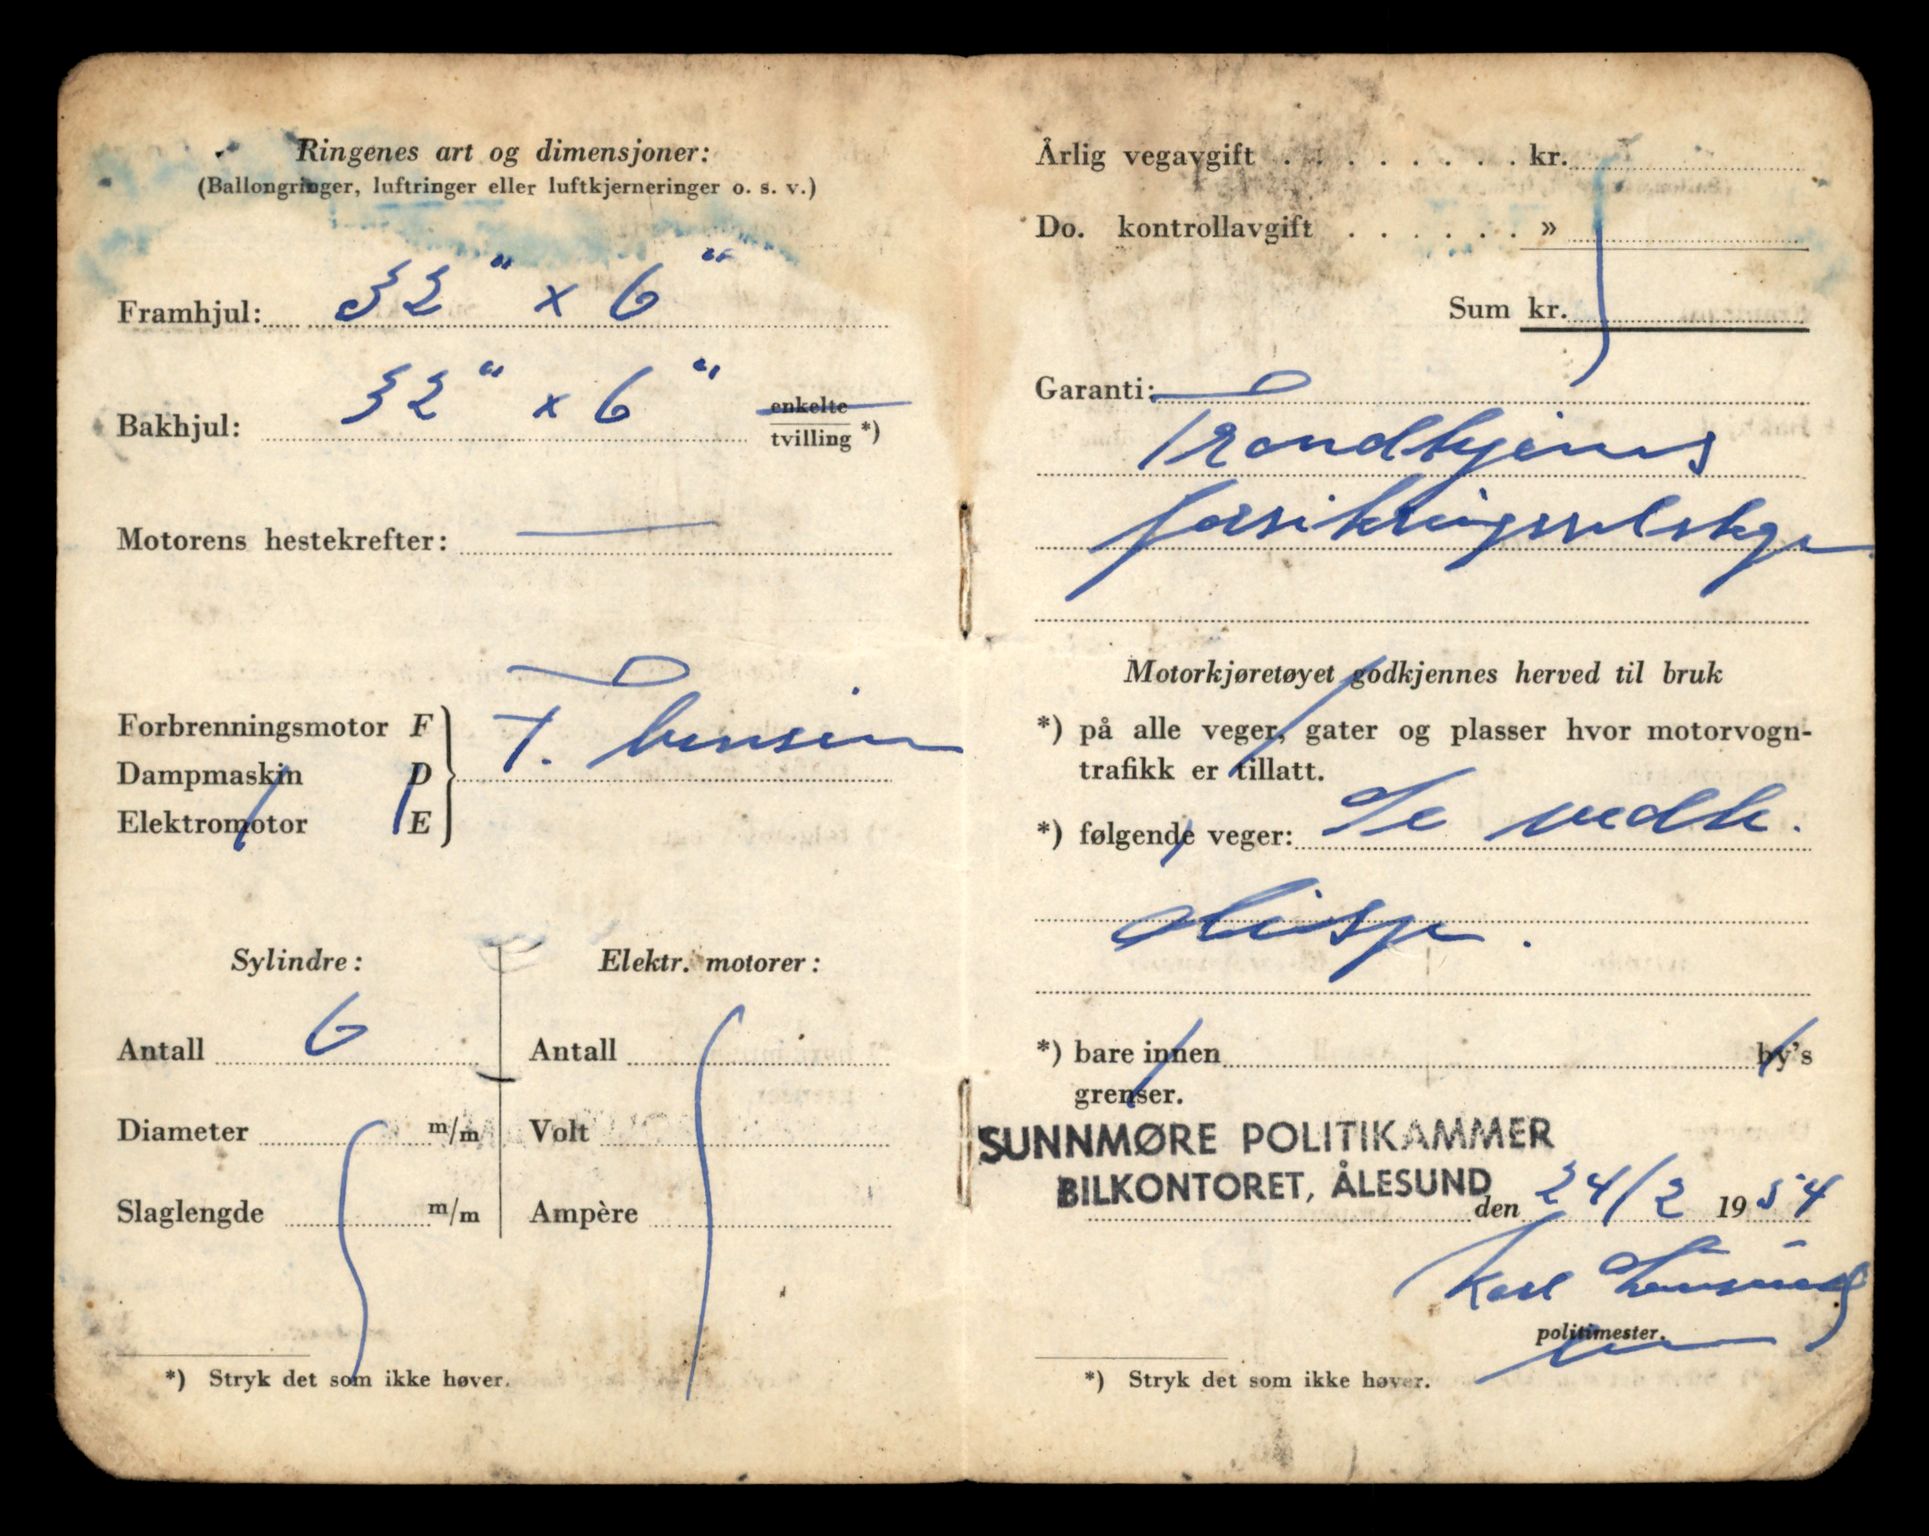 Ringenes art og dimensjoner:
(Ballongringer, luftringer eller luftkjerneringer o. s. v.)
Framhjul: 32" x 6"
Bakhjul: 32" x 6" enkelte
tvilling *)
Motorens hestekrefter: —
Forbrenningsmotor F
F. bensin
Dampmaskin D
Elektromotor E
Sylindre:
Antall 6
Diameter m/m
Slaglengde m/m
Elektr. motorer:
Antall
Volt
Ampère
*) Stryk det som ikke høver.
Årlig vegavgift . . . . . . . . kr.
Do. kontrollavgift . . . . . . »
Sum kr.
Garanti:
Trondhjems
forsikringsselskap
Motorkjøretøyet godkjennes herved til bruk
*) på alle veger, gater og plasser hvor motorvogn-
trafikk er tillatt.
*) følgende veger: Se vedh.
disp.
*) bare innen by's
grenser.
SUNNMØRE POLITIKAMMER
BILKONTORET, ÅLESUND
den 24/2 1954
Karl
politimester.
*) Stryk det som ikke høver.